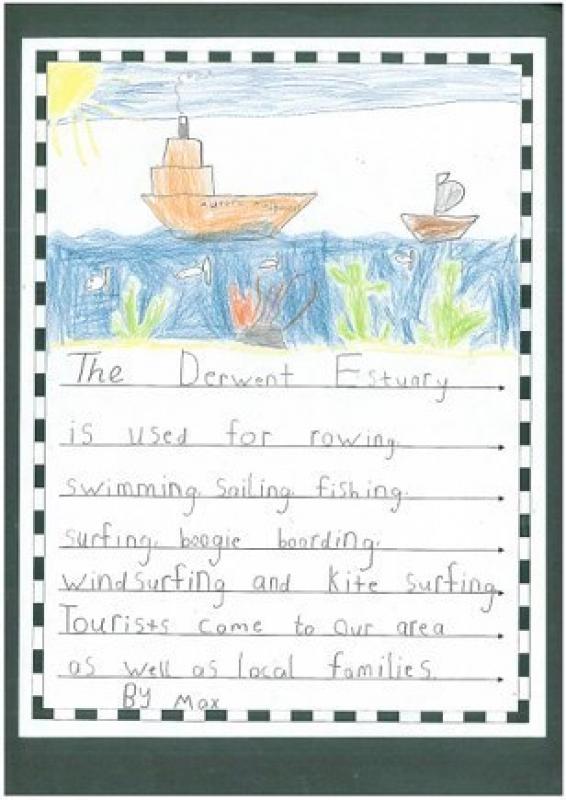 Aurora
The Derwent Estuary
is used for rowing.
swimming. Sailing. fishing.
surfing. boogie boarding.
windsurfing and kite surfing.
Tourists come to our area
as well as local families.
By Max